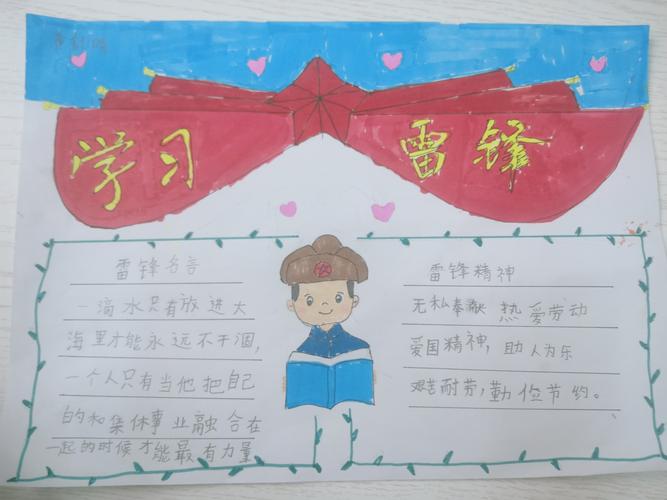 学习
雷锋
雷锋名言
一滴水只有放进大
海里才能永远不干涸,
一个人只有当他把自己
的和集体事业融合在
一起的时候才能最有力量
雷锋精神
无私奉献 热爱劳动
爱国精神, 助人为乐
艰苦耐劳, 勤俭节约。